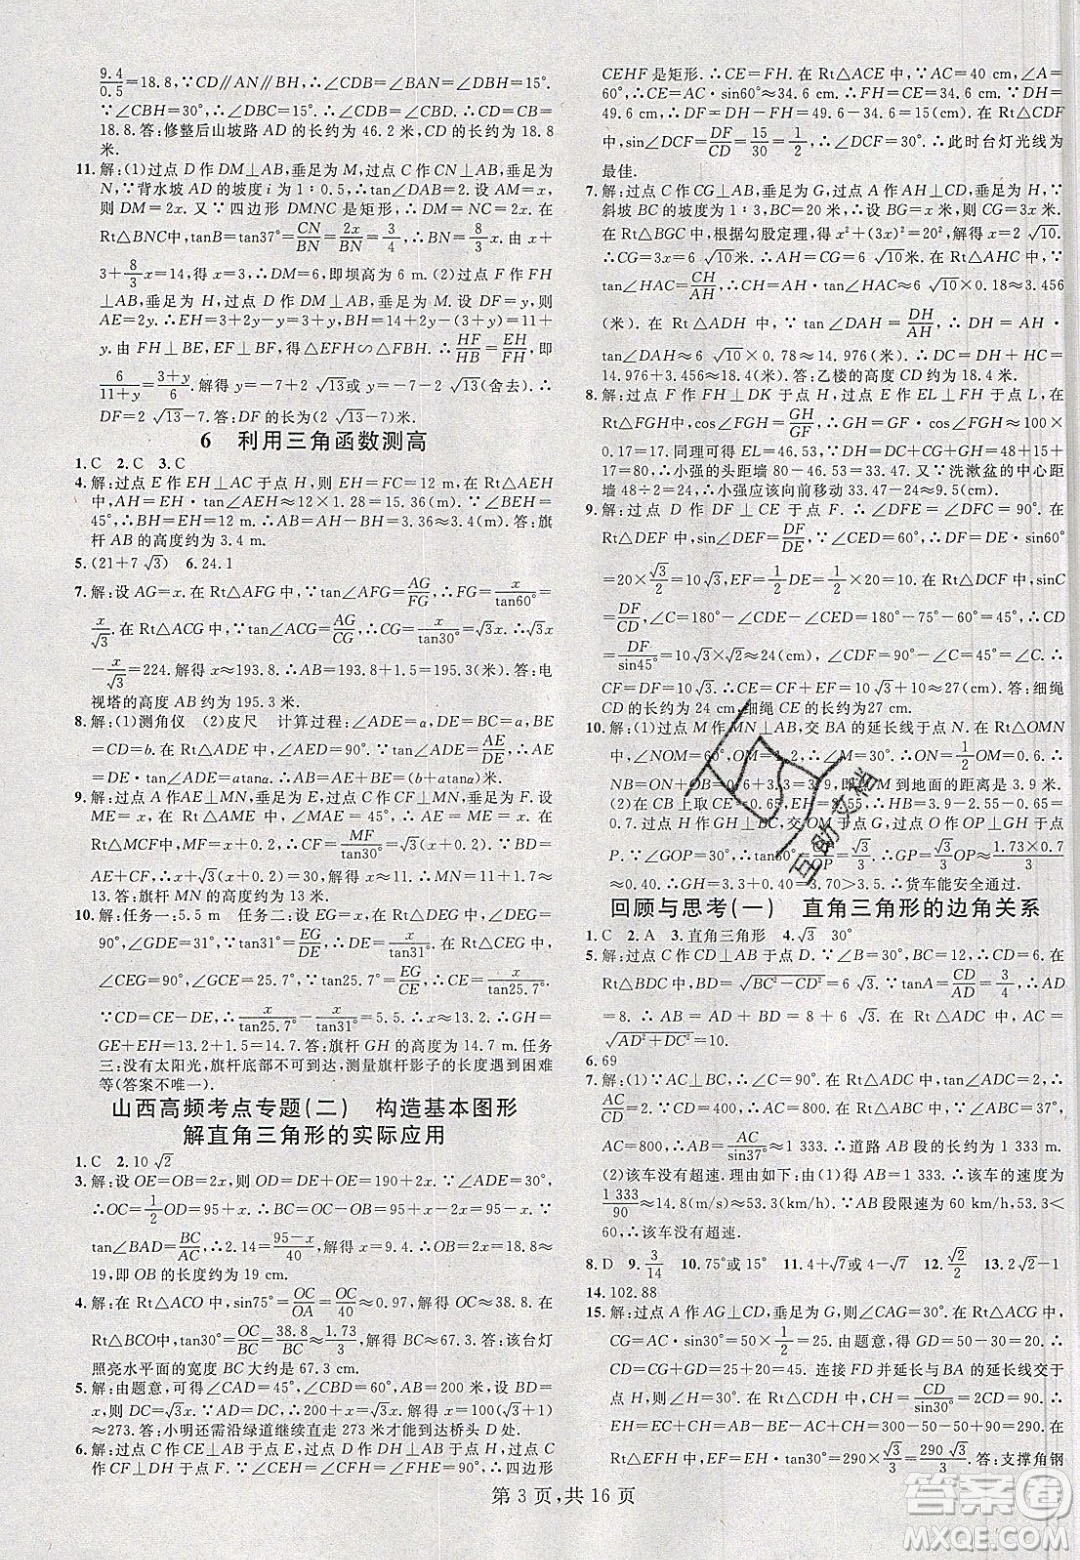 9.4/0.5=18.8,∵CD∥AN∥BH,∴∠CDB=∠BAN=∠ABH=15°.
∵∠CBH=30°,∴∠DBC=15°,∴∠CDB=∠CBD.∴CD=CB=
18.8.答:修整后山坡路AD的长约为46.2米,CD的长约为18.8
米.
11.解:(1)过点D作DM⊥AB,垂足为M,过点C作CN⊥AB,垂足为
N,∵背水坡AD的坡度i为1∶0.5,∴tan∠DAB=2.设AM=x,则
DM=2x.又∵四边形DMNC是矩形,∴DM=NC=2x.在
Rt△BNC中,tanB=tan37°=CN/BN=2x/BN=3/4,∴BN=8/3x,由x+
3+8/3x=14,得x=3,∴DM=6,即坝高为6 m.(2)过点F作FH
⊥AB,垂足为H,过点D作DM⊥AB,垂足为M.设DF=y,则
AE=2y.∴EH=3+2y-y=3+y,BH=14+2y-(3+y)=11+
y.由FH⊥BE,EF⊥BF,得△EFH∽△FBH.∴HF/HB=EH/FH,即
6/(11+y)=(3+y)/6.解得y=-7+2√13或y=-7-2√13(舍去).∴
DF=2√13-7.答:DF的长为(2√13-7)米.
6 利用三角函数测高
1.C 2.C 3.C
4.解:过点E作EH⊥AC于点H,则EH=FC=12 m,在Rt△AEH
中,AH=EH·tan∠AEH≈12×1.28=15.36(m).∵∠BEH=
45°,∴BH=EH=12 m.∴AB=AH-BH=3.36≈3.4(m).答:旗
杆AB的高度约为3.4 m.
5.(21+7√3) 6.24.1
7.解:设AG=x.在Rt△AFG中,tan∠AFG=AG/FG,∴FG=x/tan60°=
x/√3.在Rt△ACG中,∵tan∠ACG=AG/CG,∴CG=x/tan30°=√3x.∴√3x
-x/√3=224.解得x≈193.8.∴AB=193.8+1.5=195.3(米).答:电
视塔的高度AB约为195.3米.
8.解:(1)测角仪 (2)皮尺 计算过程:∠ADE=α,DE=BC=a,BE
=CD=b.在Rt△ADE中,∠AED=90°.∵tan∠ADE=AE/DE,∴AE
=DE·tan∠ADE=atanα.∴AB=AE+BE=(b+atanα)米.
9.解:过点A作AE⊥MN,垂足为E,过点C作CF⊥MN,垂足为F.设
ME=x,在Rt△AME中,∠MAE=45°,∴AE=ME=x,在
Rt△MCF中,MF=x+0.2,CF=MF/tan30°=√3(x+0.2),∵BD=
AE+CF,∴x+√3(x+0.2)=30.∴x≈10.9.则MN=10.9+1.7≈
13.答:旗杆MN的高度约为13米.
10.解:任务一:5.5 m 任务二:设EG=x m,在Rt△DEG中,∠DEG
=90°,∠GDE=31°,∵tan31°=EG/DE,∴DE=x/tan31°.在Rt△CEG中,
∠CEG=90°,∠GCE=25.7°,∵tan25.7°=EG/CE,CE=x/tan25.7°.
∵CD=CE-DE,∴x/tan25.7°-x/tan31°=5.5.∴x=13.2.∴GH=
GE+EH=13.2+1.5=14.7.答:旗杆GH的高度约为14.7 m.任务
三:没有太阳光,旗杆底部不可到达,测量旗杆影子的长度遇到困难
等(答案不唯一).
山西高频考点专题(二) 构造基本图形
解直角三角形的实际应用
1.C 2.10√2
3.解:设OE=OB=2x,则OD=DE+OE=190+2x.∵∠ADE=30°,
∴OC=1/2OD=95+x.∴BC=OC-OB=95+x-2x=95-x.∵
tan∠BAD=BC/AC,∴2.14≈(95-x)/40,解得x≈9.4.∴OB=2x=18.8≈
19,即OB的长约为19 cm.
4.解:在Rt△ACO中,sin75°=OC/OA=OC/40≈0.97,解得OC≈38.8.在
Rt△BCO中,tan30°=OC/BC=38.8/BC≈1.73/3,解得BC≈67.3.答:该台灯
照亮水平面的宽度BC大约是67.3 cm.
5.解:由题意,可得∠CAD=45°,∠CBD=60°,AB=200米,则设BC=
x米,故DC=√3x米.∵AC=DC,∴200+x=√3x.解得x=100(√3+1)
≈273.答:小明还需沿绿道继续直走273米才能到达桥头D处.
6.解:过点C作CF⊥DE,垂足为F,过点C作CE⊥AB于点E,过点
C作CF⊥DH于点F.∵∠CEH=∠CFH=∠FHE=90°,∴四边形
CEHF是矩形.∴CE=FH.在Rt△ACE中,∵AC=40 cm,∠A=
60°,∴CE=AC·sin60°≈34.6(cm).∴FH=CE=34.6(cm).∵DH=
49.6 cm,∴DF=DH-FH=49.6-34.6=15(cm).在Rt△CDF
中,sin∠DCF=DF/CD=15/30=1/2,∴∠DCF=30°.∴此时台灯光线为
最佳.
7.解:过点C作CG⊥AB,垂足为G,过点A作AH⊥CD,垂足为H,∵
斜坡BC的坡度为1∶3,BC=20米,∴设CG=3x米,则BG=x米.在
Rt△BGC中,根据勾股定理,得x²+(3x)²=20².解得x=2√10.
∴CG=3x=6√10.∴AH=CG=6√10.在Rt△AHC中,∵
tan∠HAC=CH/AH,∴CH=AH·tan∠HAC≈6√10×0.18≈3.456
(米).在Rt△AHD中,∵tan∠DAH=DH/AH,∴DH=AH·
tan∠DAH≈6√10×0.78≈14.976(米).∴DC=DH+HC=
14.976+3.456≈18.4(米).答:乙楼的高度CD约为18.4米.
8.解:过点F作FH⊥DK于点H,过点G作GH⊥FH于点L,在
Rt△FGH中,∵FG=100,∠GFH=80°,cos∠GFH=GF/GH,∴FH=
100×0.17=17.∴同理可得GL≈46.53,∴LH=GK-GH=48+15+
17=80.∴小强的头距墙80-46.53=33.47.∵洗漱盆的中心距
墙48÷2=24.∴小强应该向前移动33.47-24≈9.5(cm).
9.解:过点D作DF⊥CE于点F.∴∠DFE=∠DFC=90°.在
Rt△DEF中,sin∠DEF=DF/DE,∴DF=DE·sin∠DEF=20·sin60°
=20×√3/2=10√3,EF=1/2DE=1/2×20=10.在Rt△DCF中,sinC=
DF/CD,∵∠C=180°-∠CDE-∠DEF=180°-75°-60°=45°,∴
CD=DF/sin45°=10√3×√2=10√6≈24.∴FC=CD·cos45°=10√3.∴
CE=EF+FC=10+10√3=10(1+√3)≈27(cm).答:细绳CD
的长约为24 cm,细绳CE的长约为27 cm.
10.解:(1)过点M作MN⊥AB,交BA的延长线于点N.在Rt△OMN
中,∠NOM=60°,OM=1.2,∴∠M=30°.∴ON=1/2OM=0.6.∴
NB=ON+OB=0.6+3.3=3.9,即点M到地面的距离是3.9米.
(2)在CB上取CE=0.65,EH=2.55,∴HB=3.9-0.65-2.55=0.7.
过点H作GH⊥BC,交OM于点G,过点O作OP⊥GH于点
P.∵∠GOP=30°,∴tan30°=GP/OP=√3/3.∴GP=√3/3OP=(1.73×0.7)/3
≈0.40.∴GH=3.3+0.40=3.70>3.5.∴货车能安全通过.
回顾与思考(一) 直角三角形的边角关系
1.C 2.A 3.直角三角形 4.√3 30°
5.解:过点C作CD⊥AB于点D.∵∠B=45°,∴CD=BD=6.在
Rt△BDC中,BD=√(BC²-CD²)=6.∵tanA=CD/AD=3/4,∴AD
=8.∴AB=AD+BD=8+6=14.在Rt△ADC中,AC=
√(AD²+DC²)=10.
6.69
7.解:(1)在Rt△ACD中,∠C=90°,∠ADC=45°,CD=800,∵tan∠ADC=
AC/CD.∴AC=800.在Rt△ABC中,∠C=90°,∠ABC=37°,
AC=800,∴AB=AC/sin37°≈1 333.答:道路AB段的长约为1 333 m.
(2)该汽车没有超速.理由如下:∵AB=1 333.∴该车的速度为
1 333/90≈14.8(m/s)=53.3(km/h).∵AB段限速为60 km/h,53.3<
60,∴该车没有超速.
8.D 9.3/14 10.75°或15° 11.4+√7或4-√7 12.√2/2 13.2√2-1
14.102.88
15.解:过点A作AG⊥CD,垂足为G,则∠CAG=30°.在Rt△ACG中,
CG=AC·sin30°=50×1/2=25.由题意,得GD=50-30=20.∴
CD=CG+GD=25+20=45.连接FD并延长与BA的延长线交于
点H,则∠H=30°.在Rt△CDH中,CH=CD/sin30°=2CD=90.∴
EH=EC+CH=AB-BE-AC+CH=300-50-50+90=290.在
Rt△EFH中,EF=EH·tan30°=290×√3/3=290√3/3.答:支撑角钢
第 3 页,共 16 页
互助文档
答案圈
MXQE.COM